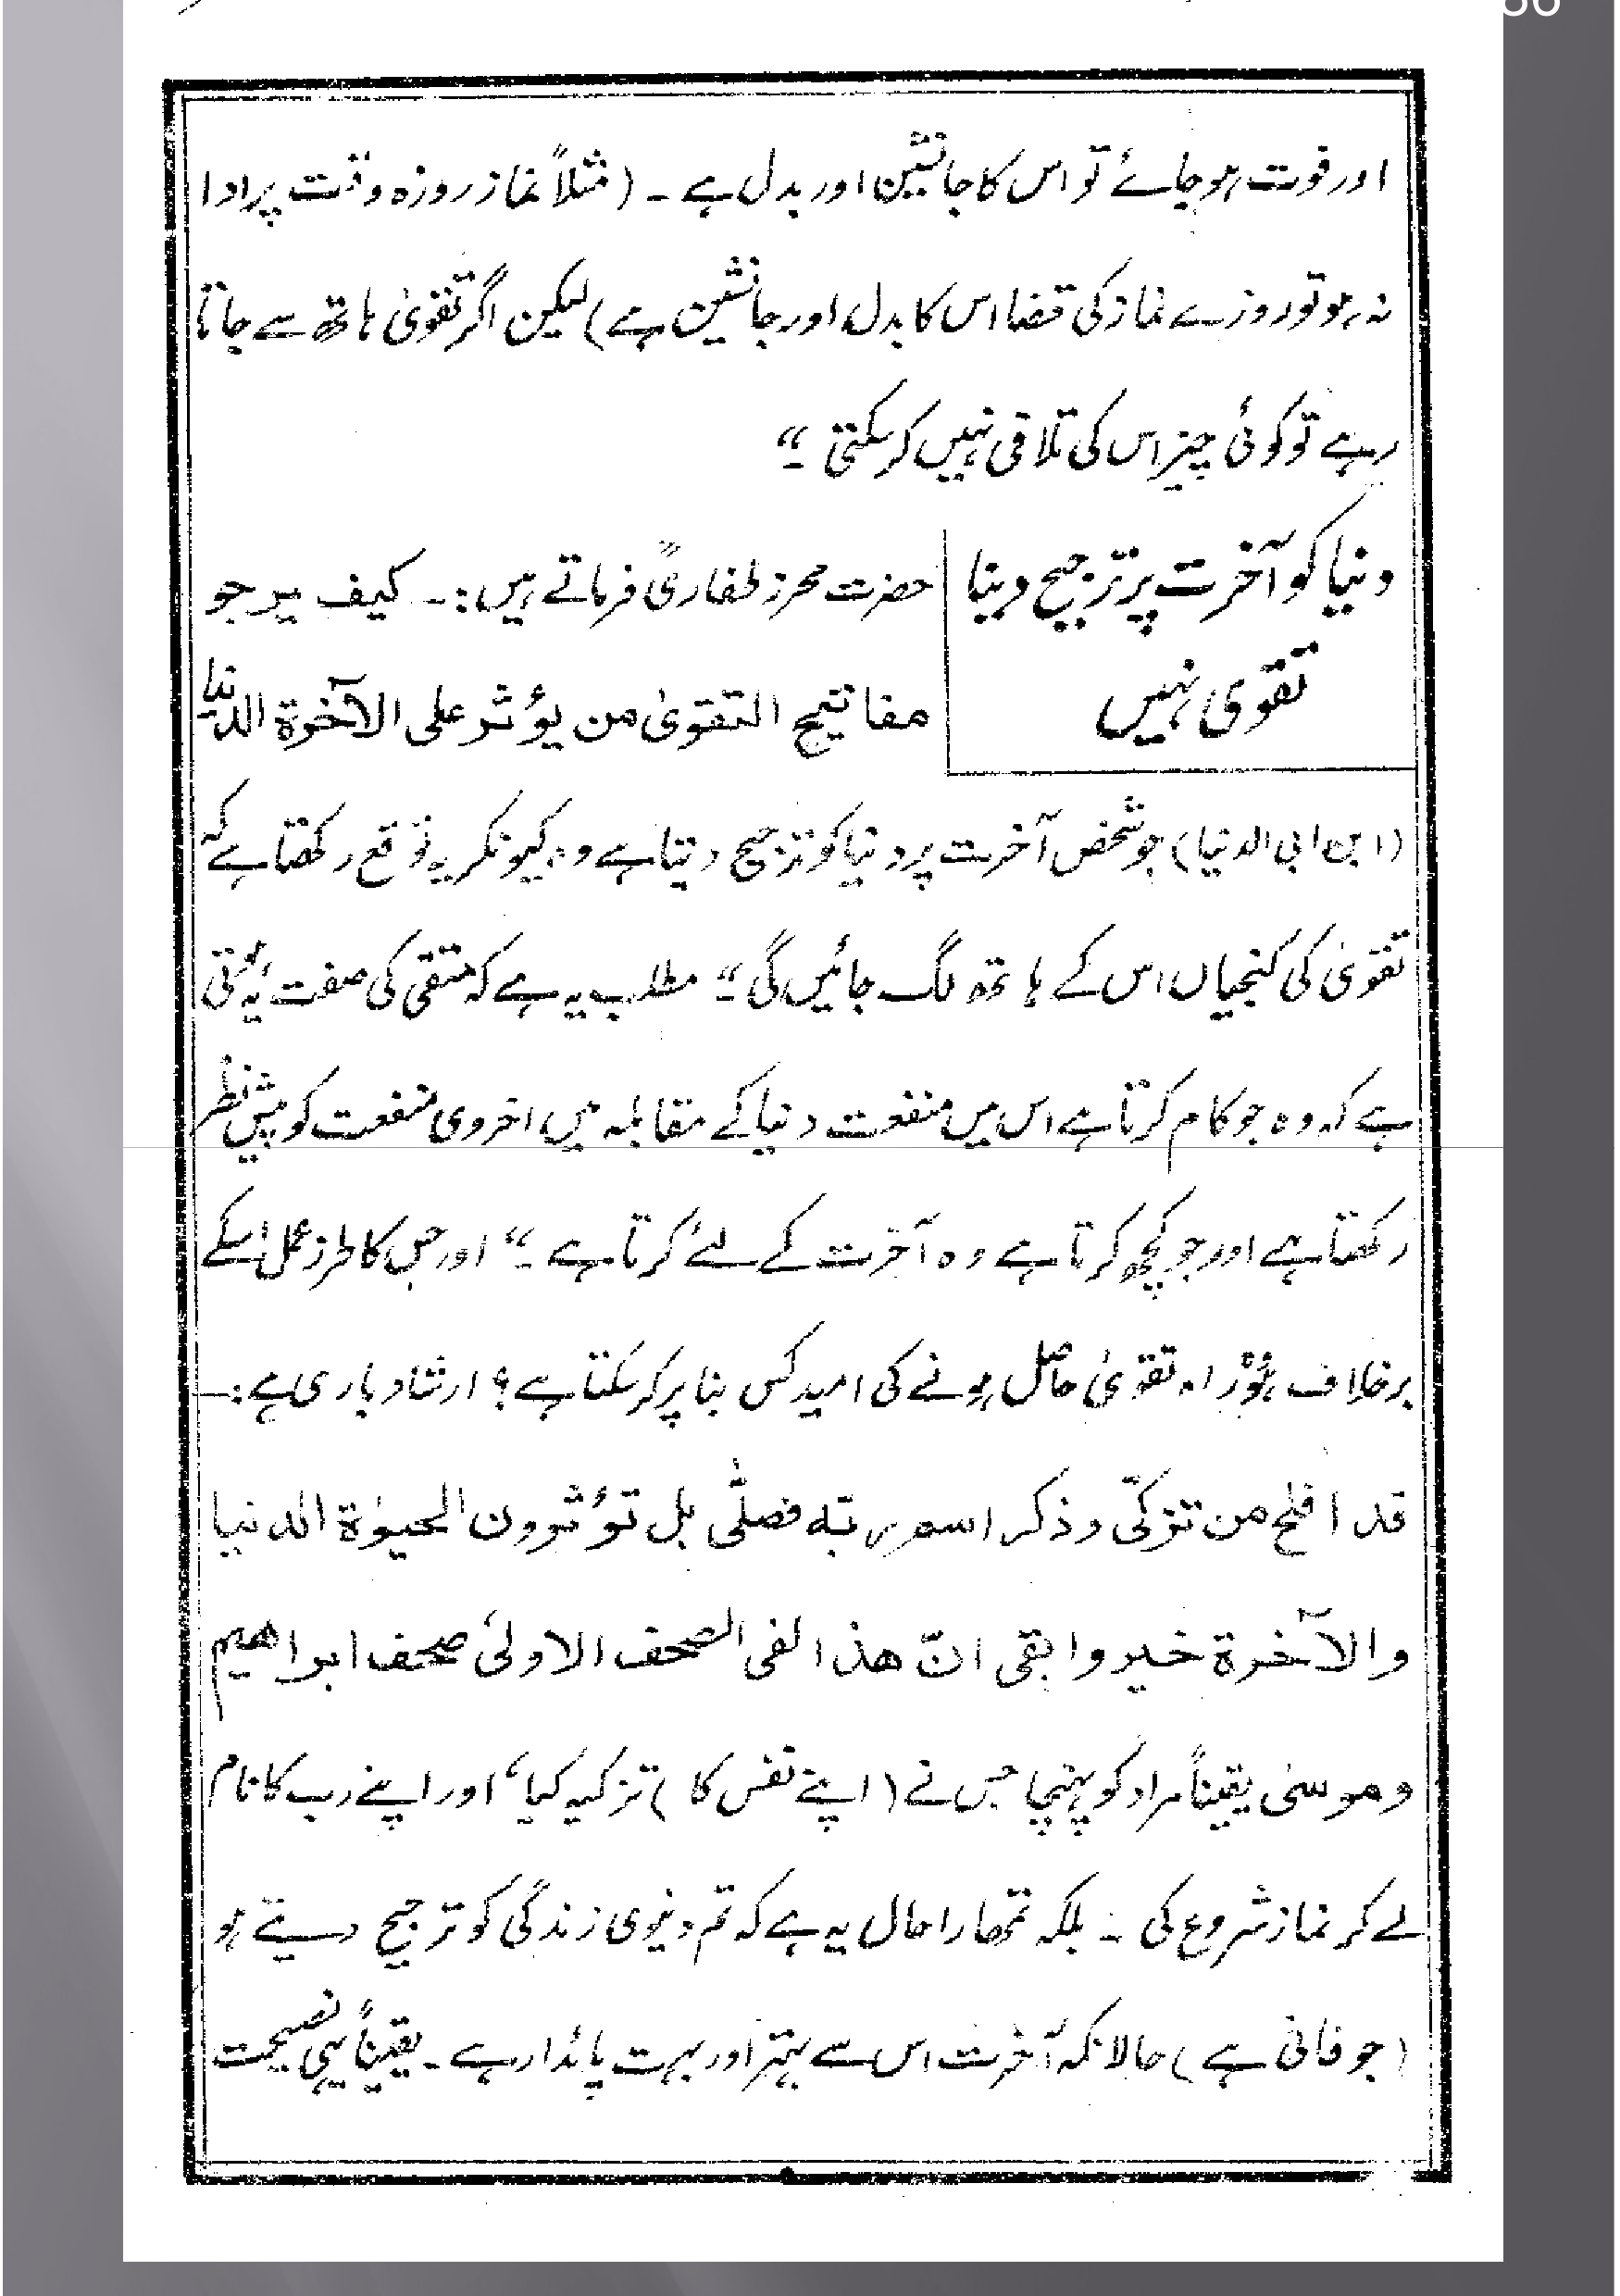 اور فوت ہو جائے تو اس کا جانشین اور بدل ہے ۔ (مثلاً نماز روزہ وقت پر ادا
نہ ہو تو روزے نماز کی قضا اس کا بدل اور جانشین ہے) لیکن اگر تقویٰ ہاتھ سے جاتا
رہے تو کوئی چیز اس کی تلافی نہیں کر سکتی ۔"
دنیا کو آخرت پر ترجیح دینا
تقوی نہیں
حضرت محرز طفاریؒ فرماتے ہیں:۔ کیف یرجو
مفاتیح التقویٰ من یؤثر علی الآخرۃ الدنیا
(ابن ابی الدنیا) جو شخص آخرت پر دنیا کو ترجیح دیتا ہے وہ کیونکر یہ توقع رکھتا ہے کہ
تقویٰ کی کنجیاں اس کے ہاتھ لگ جائیں گی ۔" مطلب یہ ہے کہ متقی کی صفت یہ ہوتی
ہے کہ وہ جو کام کرتا ہے اس میں منفعت دنیا کے مقابلہ میں اخروی منفعت کو پیش نظر
رکھتا ہے اور جو کچھ کرتا ہے وہ آخرت کے لئے کرتا ہے ۔" اور جس کا طرز عمل اسکے
برخلاف ہو وہ تقویٰ حاصل ہونے کی امید کس بنا پر کر سکتا ہے؟ ارشاد باری ہے:۔
قد افلح من تزکّی وذکر اسم ربّہ فصلّٰی بل تؤثرون الحیوٰۃ الدنیا
والآخرۃ خیر وابقی انّ ھذا لفی الصحف الاولیٰ صحف ابراھیم
وموسیٰ یقیناً مراد کو پہنچا جس نے (اپنے نفس کا) تزکیہ کیا، اور اپنے رب کا نام
لے کر نماز شروع کی ۔ بلکہ تمھارا حال یہ ہے کہ تم دنیوی زندگی کو ترجیح دیتے ہو
(جو فانی ہے) حالانکہ آخرت اس سے بہتر اور بہت پائدار ہے ۔ یقیناً یہی نصیحت